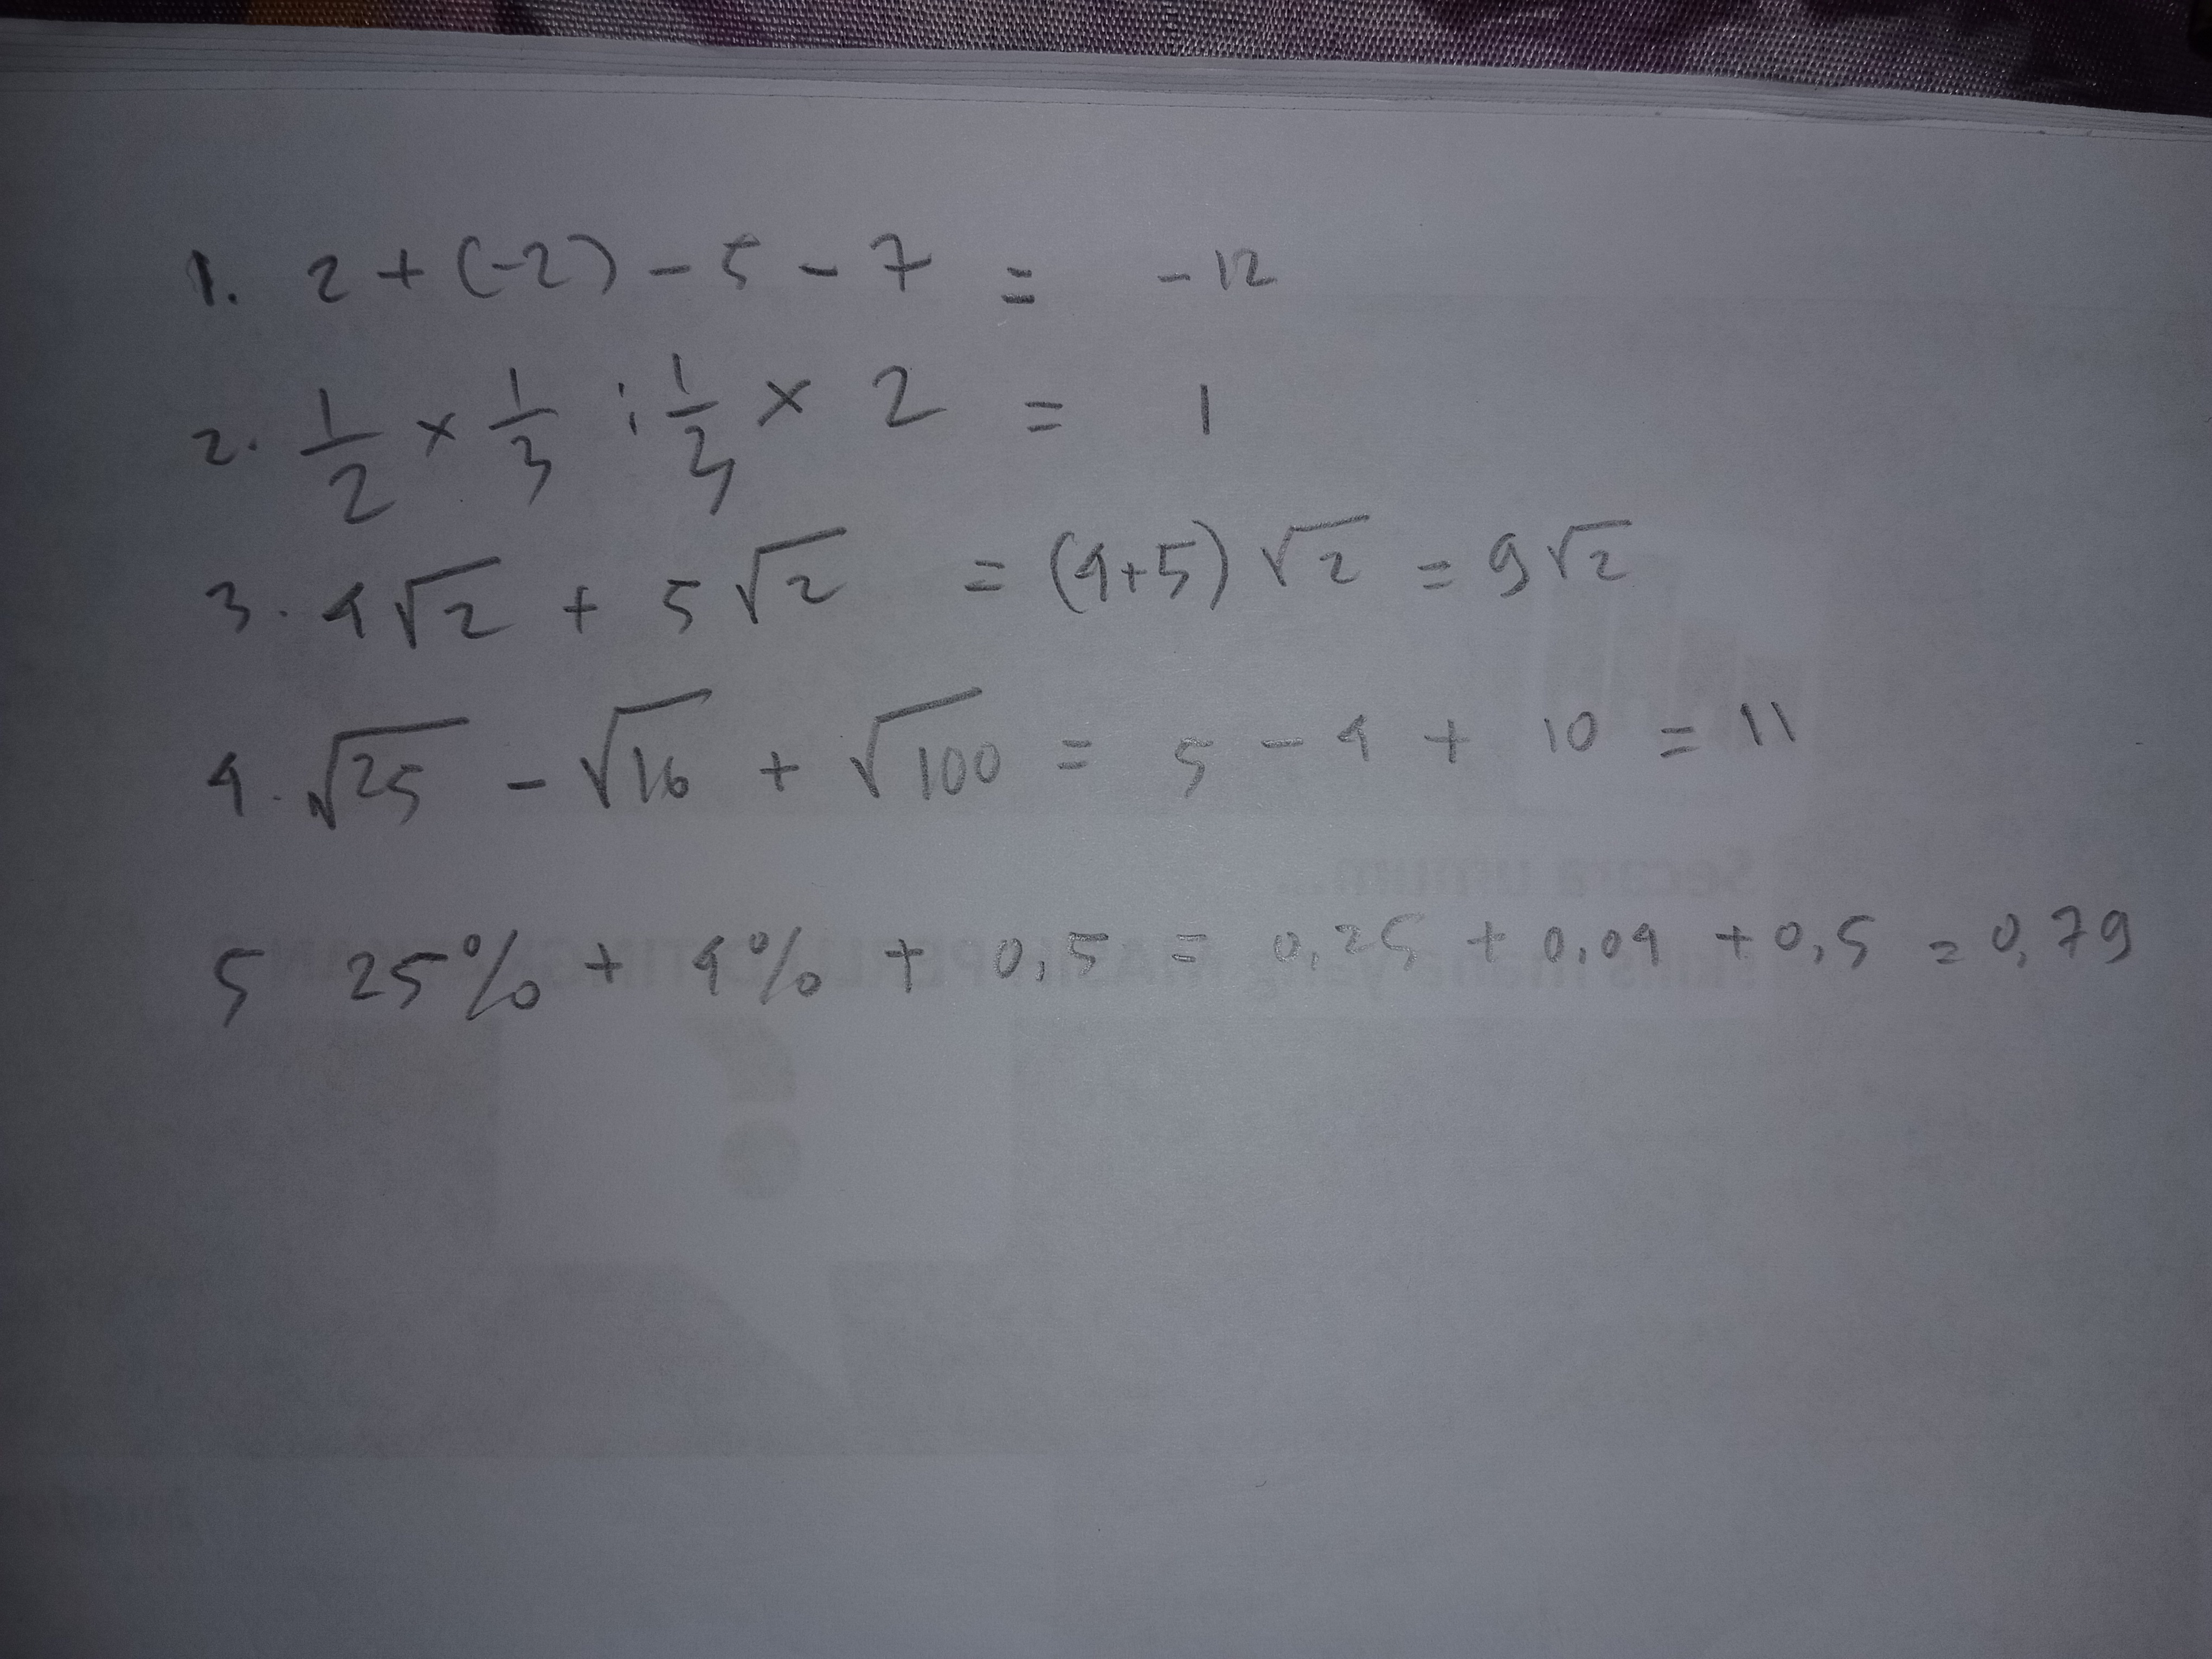 1. 2 + (-2) - 5 - 7 = -12
2. 1/2 × 1/3 : 1/3 × 2 = 1
3. 4√2 + 5√2 = (4+5)√2 = 9√2
4. √25 - √16 + √100 = 5 - 4 + 10 = 11
Secara umum...
5 25% + 4% + 0,5 = 0,25 + 0,04 + 0,5 = 0,79